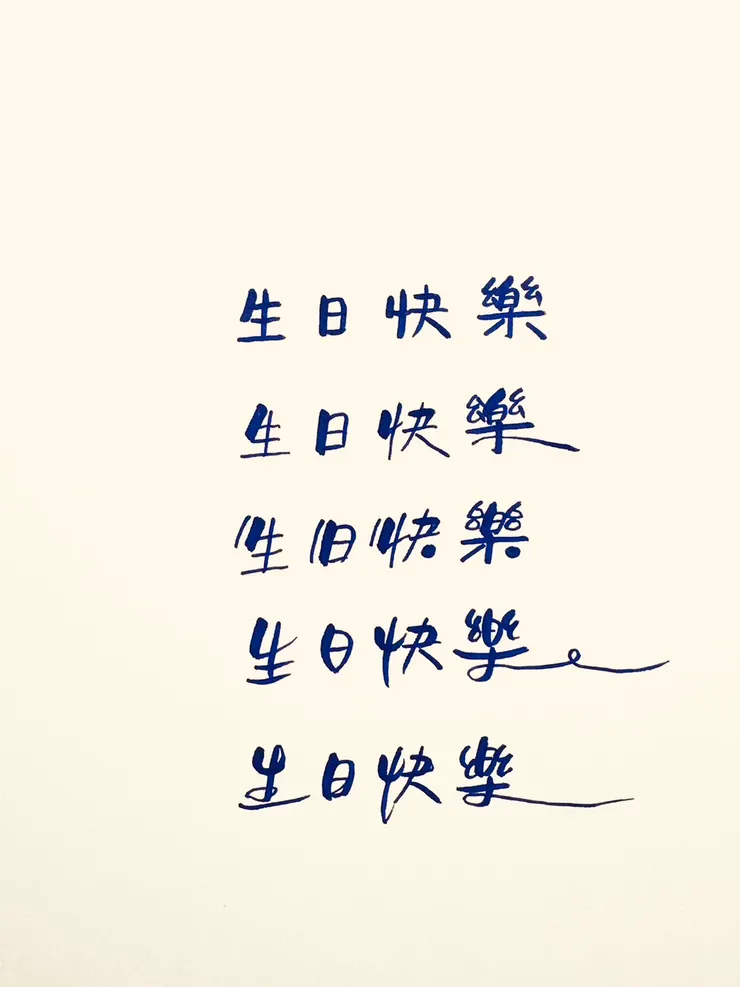 生日快樂
生日快樂
生日快樂
生日快樂
生日快樂